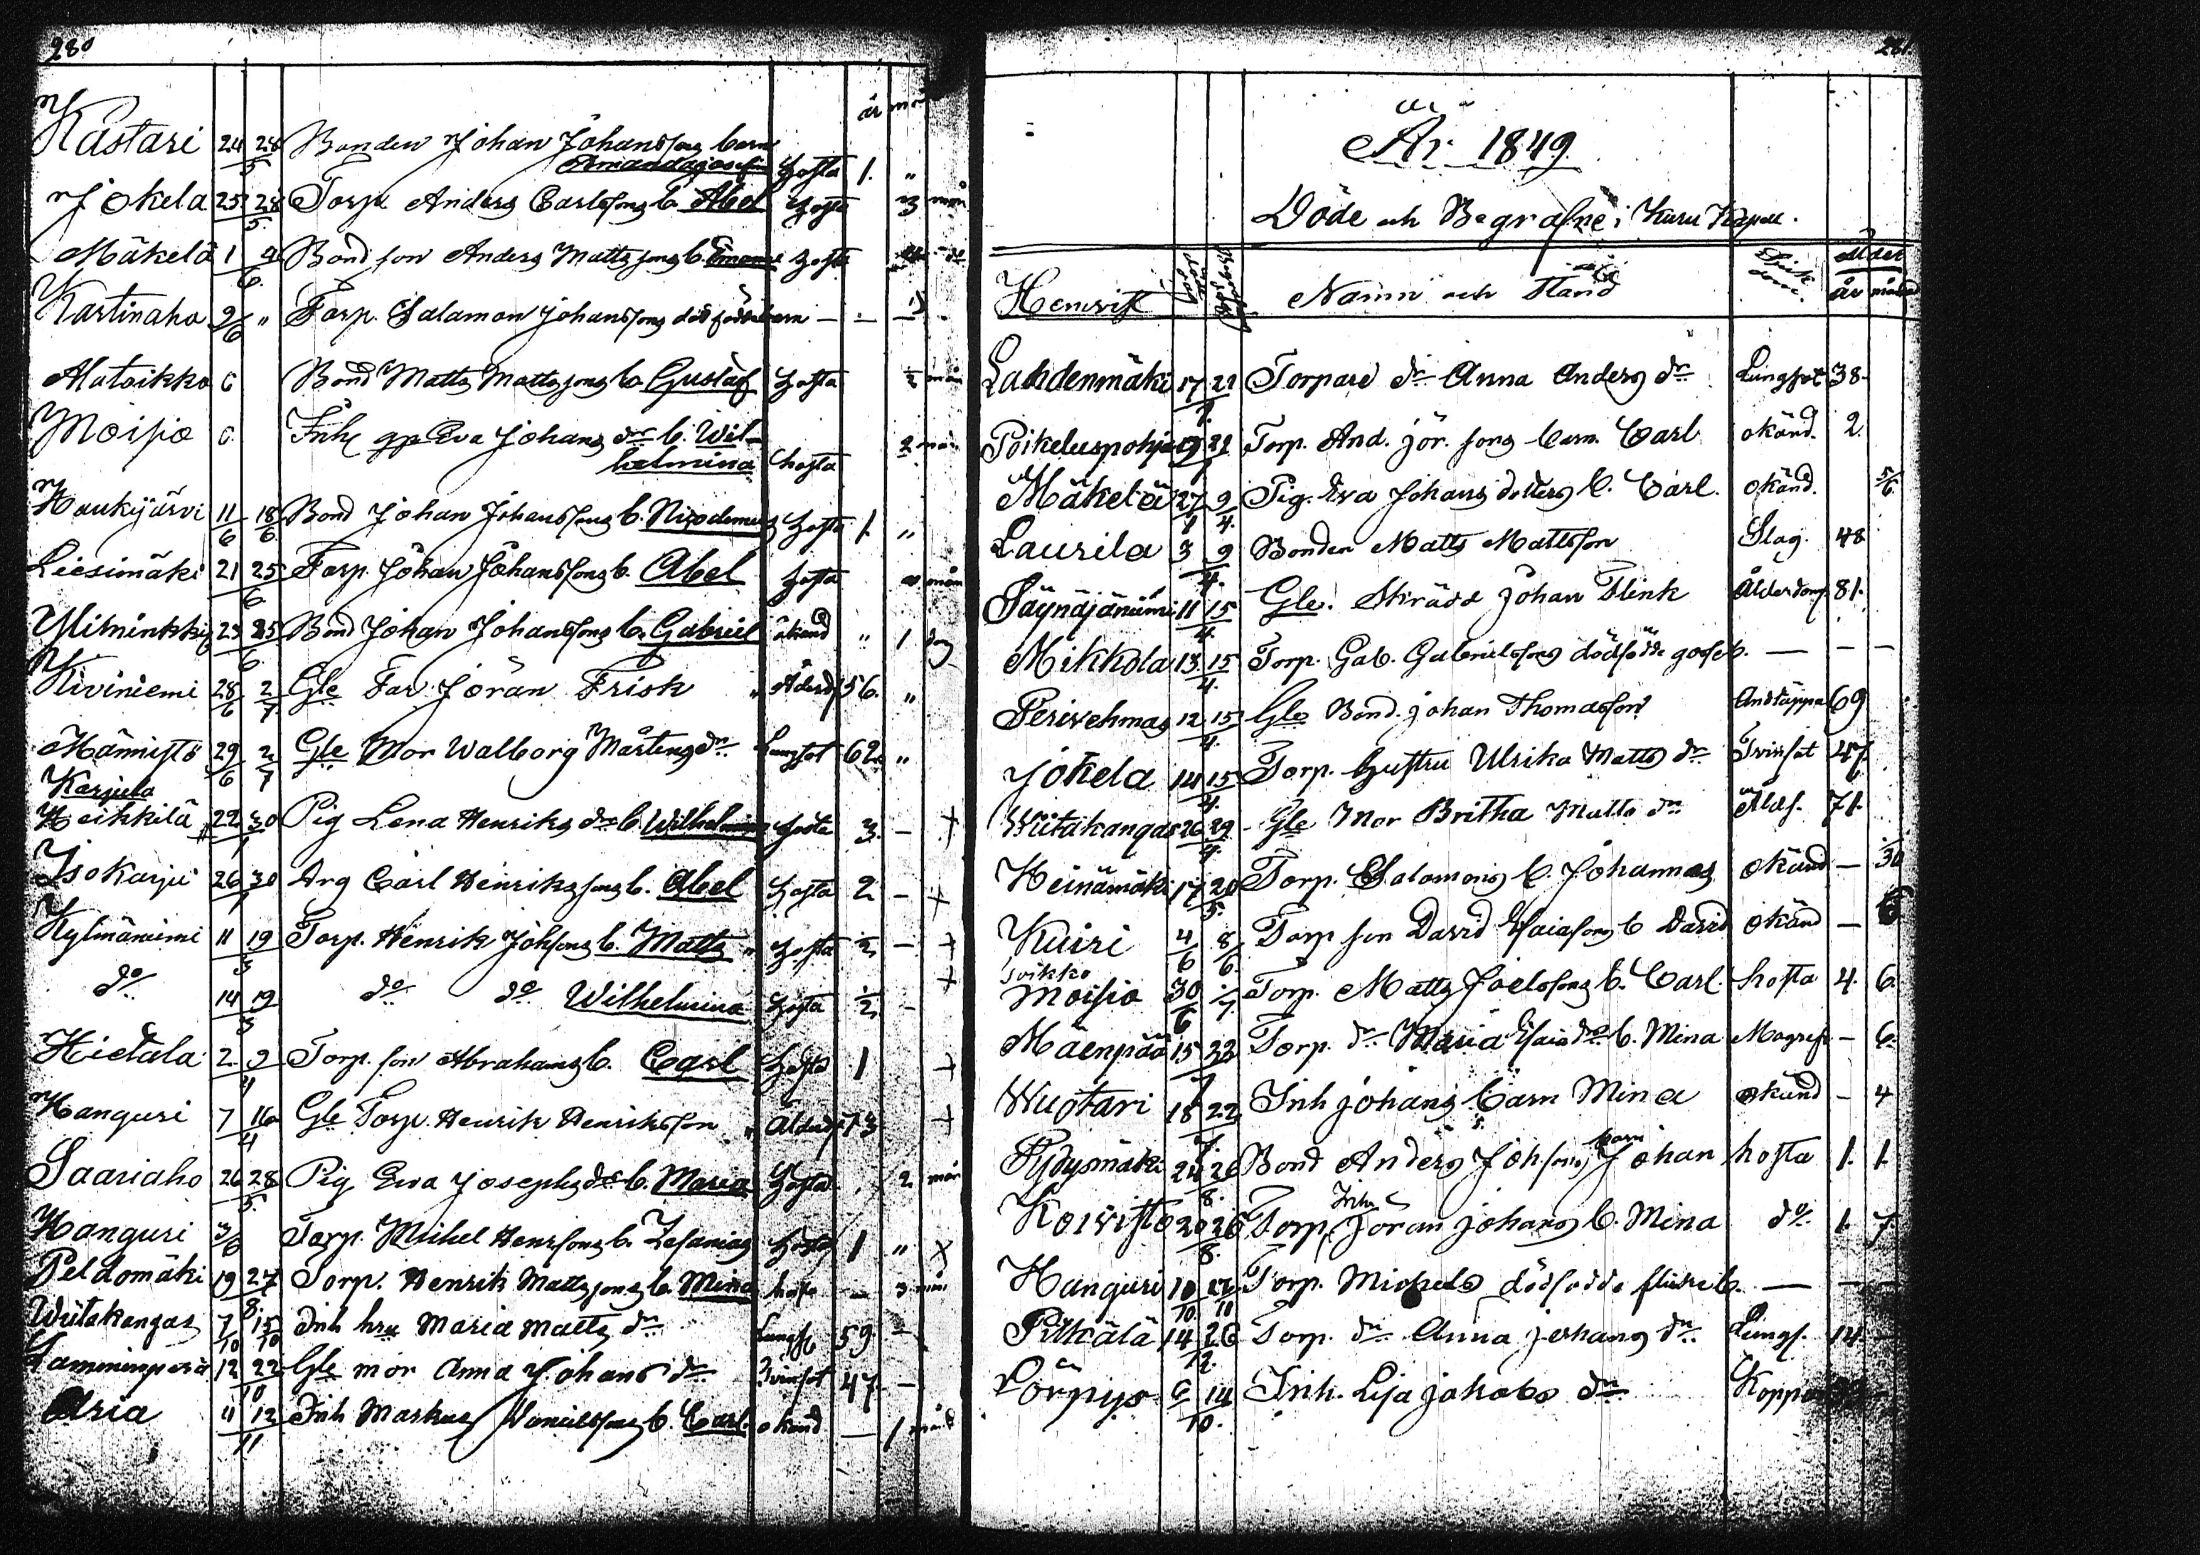 280
år mån
Kastari 24 28/5 Bonden Johan Johanssons barn
Amanda Josefin hosta 1. "
Jokela 25 28/5 Torp Anders Carlssons b. Abel hosta 3 mån
Mäkelä 1 4/6 Bond son Anders Mattssons b. hosta
Torp. Salamon Johanssons död födde barn — — —
Alataikko 6 Bond Matts Mattssons b. Gustaf hosta ½ mån
Moisio 6 Inh gp Eva Johans dr b. Wil-
helmina hosta 2 mån
Haukijärvi 11/6 18/6 Bond Johan Johanssons b. Nicodemus hosta 1. "
Liesimäki 21 25/6 Torp. Johan Johanssons b. Abel hosta mån
25/6 Bond Johan Johanssons b. Gabriel okänd " 1
Kiviniemi 28/6 2/7 Gle Far Jöran Frisk 56. "
29/6 2/7 Gle Mor Walborg Mårtens dr Lungsot 62 "
Karjula
Heikkilä 22 30/1 Pig Lena Henriks dr b. Wilhelmina hosta 3 — +
Isokarju 26 30/1 Arg Carl Henrikssons b. Abel hosta 2 — +
Kylmäniemi 11 19/3 Torp. Henrik Johsons b. Matts " hosta ½ — +
do 14 19/3 do do Wilhelmina hosta ½ — +
Hietala 2 9/4 Torp. son Abrahams b. Carl hosta 1 +
Hanguri 7 16/4 Gle Torp. Henrik Henriksson " Ålderd 73 +
Saariaho 26 28/5 Pig Eva Josephs dr b. Maria hosta 2 mån
Hanguri 3/6 Torp. Mihel Hensons b. Zefanias hosta 1 " +
Peldomäki 19 27/8 Torp. Henrik Mattssons b. Mina hosta — 3 mån
Wiitakangas 7/10 15/10 Inh hru Maria Matts dr Lungs 59 —
Lamminperä 12 22/10 Gle mor Anna Johans dr Tvinsot 47 —
Asia 4 12/11 Inh Markus Danielssons b. Carl okänd — 1 månd
281
År 1849.
Döde och Begrafne i Kuru Kapell.
Hemvist Namn och Stånd Sjuk dom. Ålder
år månad
Lahdenmäki 17 21/1 Torpare dr Anna Anders dr Lungsot 38
Poikeluspohja 19 21/1 Torp. And. Jör. sons barn Carl okänd. 2.
Mäkelä 27/1 9/4 Pig. Eva Johans dotters b. Carl. okänd. 5/6
Laurila 3 9/4. Bonden Matts Mattsson Slag. 48
Säynäjäniemi 11 15/4. Gle. Skrädd Johan Flink Ålderdom 81.
Mikkola 13 15/4. Torp. Gab. Gabrielssons dödfödde gosseb. — — —
Perivehmas 12 15/4. Gle Bond. Johan Thomasson Andtäppa 69
Jokela 14 15/4. Torp. hustru Ulrika Matts dr Tvinsot 47
Wiitakangas 26 29/4. Gle Mor Britha Matts dr Ålds. 71.
Heinämäki 17 20/5. Torp. Salomons b. Johannes okänd — 30
Kuiri 4/6 8/6. Torp son David Esaiasons b David okänd —
Moisio 30/6 1/7. Torp. Matts Joelssons b. Carl. hosta 4. 6.
Mäenpää 15 22/7 Torp. dr Maria Esaiadr b. Mina Magref — 6.
Wuotari 18 22/7. Inh Johans barn Mina okänd — 4
Pydysmäki 24 26/8. Bond Anders Johsons barn Johan hosta 1. 1.
Inh
Koivisto 20 26/8. Torp. Jöran Johans b. Mina do 1. 7.
Hanguri 10/10 Torp. Mickels dödfödde flickeb. — — —
Pitkälä 14 26/12. Torp. dr Anna Johans dr. Lungs. 14. —
6 14/10. Inh. Lisa Jakobs dr Koppor